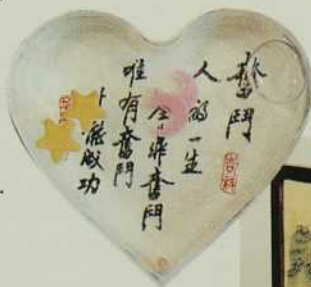 奮鬥
吉祥
人的一生
全靠奮鬥
唯有奮鬥
才能成功